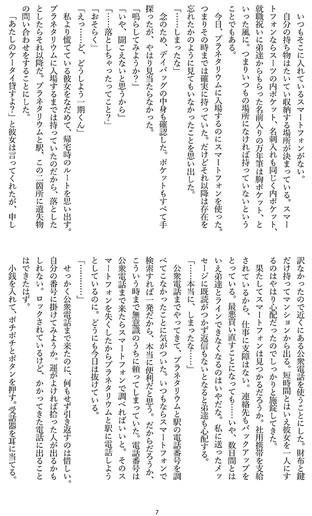 いつもそこに入れているスマートフォンがない。
自分の持ち物はたいてい収納する場所が決まっている。スマー
トフォンならスーツの内ポケット、名刺入れも同じく内ポケット、
就職祝いに弟達からもらった名前入りの万年筆は胸ポケット、と
いった風に。つまりいつもの場所になければ持っていないという
ことでもある。
今日、プラネタリウムに入場するのにスマートフォンを使った。
つまりその時までは確実に持っていた。だけどそれ以降は存在を
忘れたかのように見てもいなかったことを思い出した。
「……しまったな」
念のため、デイバッグの中身も確認した。ポケットもすべて手
探ったが、やはり見当たらなかった。
「鳴らしてみようか？」
「いや、聞こえないと思うから」
「……落としちゃったってこと？」
「おそらく」
「えっ……ど、どうしよう一期くん」
私より慌てている彼女をなだめて、帰宅時のルートを思い出す。
プラネタリウムに入場するまでは持っていたのだから、落とした
としたらそれ以降だ。プラネタリウムと駅、この二箇所に遺失物
の問い合わせをすることにした。
「あたしのケータイ貸すよ？」と彼女は言ってくれたが、申し
訳なかったので近くにある公衆電話を使うことにした。財布と鍵
だけ持ってマンションから出る。短時間とはいえ彼女を一人にす
るのはやはり心配だったのでしっかりと施錠してきた。
果たしてスマートフォンは見つかるだろうか。社用携帯を支給
されているから、仕事に支障はない。連絡先もバックアップを
とっている。最悪買い直すことになっても……いや、数日間とは
いえ弟達とラインできなくなるのはいやだな。私に送ったメッ
セージに既読がつかず返信もないとなると弟達も心配する。
「……本当に、しまったな……」
公衆電話までやってきて、プラネタリウムと駅の電話番号を調
べてこなかったことに気がついた。いつもならスマートフォンで
検索すれば一発だから。本当に便利だと思う。だからだろうか、
こういう時まで無意識のうちに頼ってしまっていた。電話番号は
公衆電話まで来たらスマートフォンで調べればいいと。そのス
マートフォンを失くしたからプラネタリウムと駅に電話しよう
としているのに。どうにも今日は抜けている。
「………」
せっかく公衆電話まで来たのに、何もせず引き返すのは惜しい。
自分の番号に掛けてみようか。運がよければ拾った人が出るかも
しれない。ロックされているけど、かかってきた電話に出ること
はできたはず。
小銭を入れて、ポチポチとボタンを押す。受話器を耳に当てる。
7